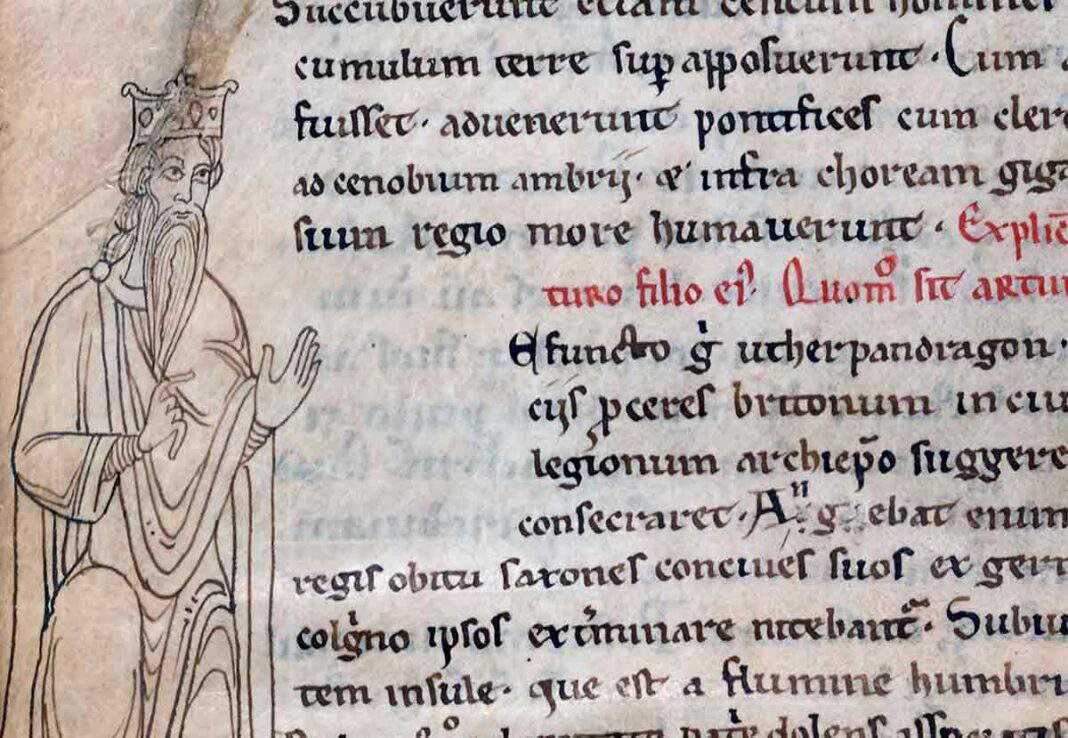 Succubuerunt etiam centum homines
cumulum terre sup apposuerunt. Cum
fuisset. advenerunt pontifices cum cler
ad cenobium ambrij. & infra choream giga
suum regio more humaverunt. Explic
turo filio ei. Quom sit artur
Efuncto g utherpandragon.
cijs pceres britonum in ciu
legionum archiepo suggere
consecraret. ebat enim
regis obitu saxones concives suos ex ger
colgrno ipsos exminare nitebant. Subiu
tem insule. que est a flumine humbri
dolens